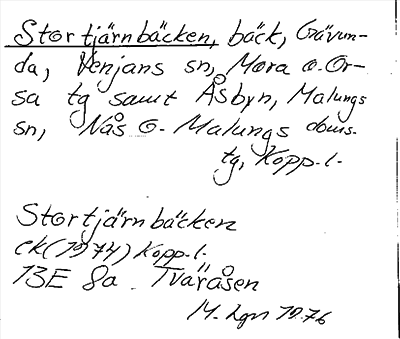 Stortjärnbäcken, bäck, Gävun-
da, Venjans sn, Mora o. Or-
sa tg samt Åsbyn, Malungs
sn, Nås o. Malungs doms.
tg, Kopp. l.
Stortjärnbäcken
ek (1974) Kopp. l.
13E 8a. Tväråsen
14. 1976